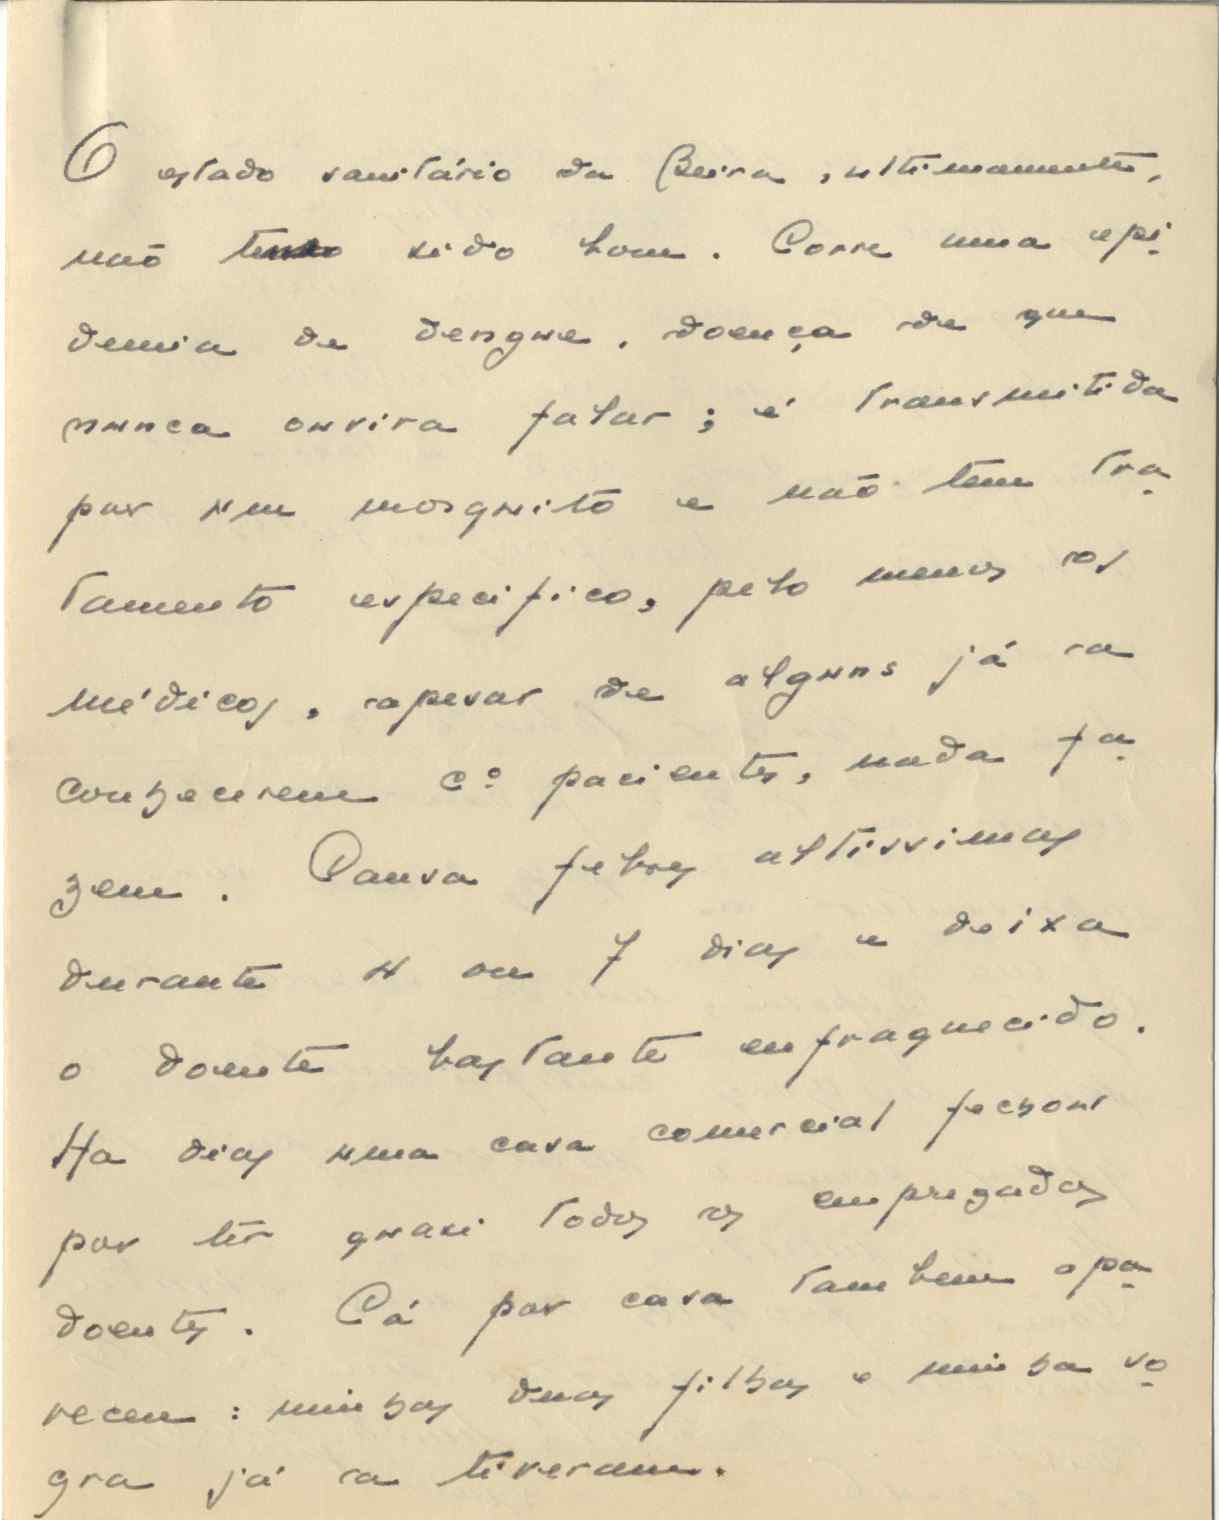 O estado sanitário da Beira, ultimamente,
não tem sido bom. Corre uma epi-
demia de dengue, doença de que
nunca ouvira falar; é transmitida
por um mosquito e não tem tra-
tamento especifico, pelo menos os
médicos, apesar de alguns já a
conhecerem cº pacientes, nada fa-
zem. Causa febres altissimas
durante 4 ou 7 dias e deixa
o doente bastante enfraquecido.
Ha dias uma casa comercial fechou
por ter quasi todos os empregados
doentes. Cá por casa tambem apa-
receu: minhas duas filhas e minha so-
gra já a tiveram.